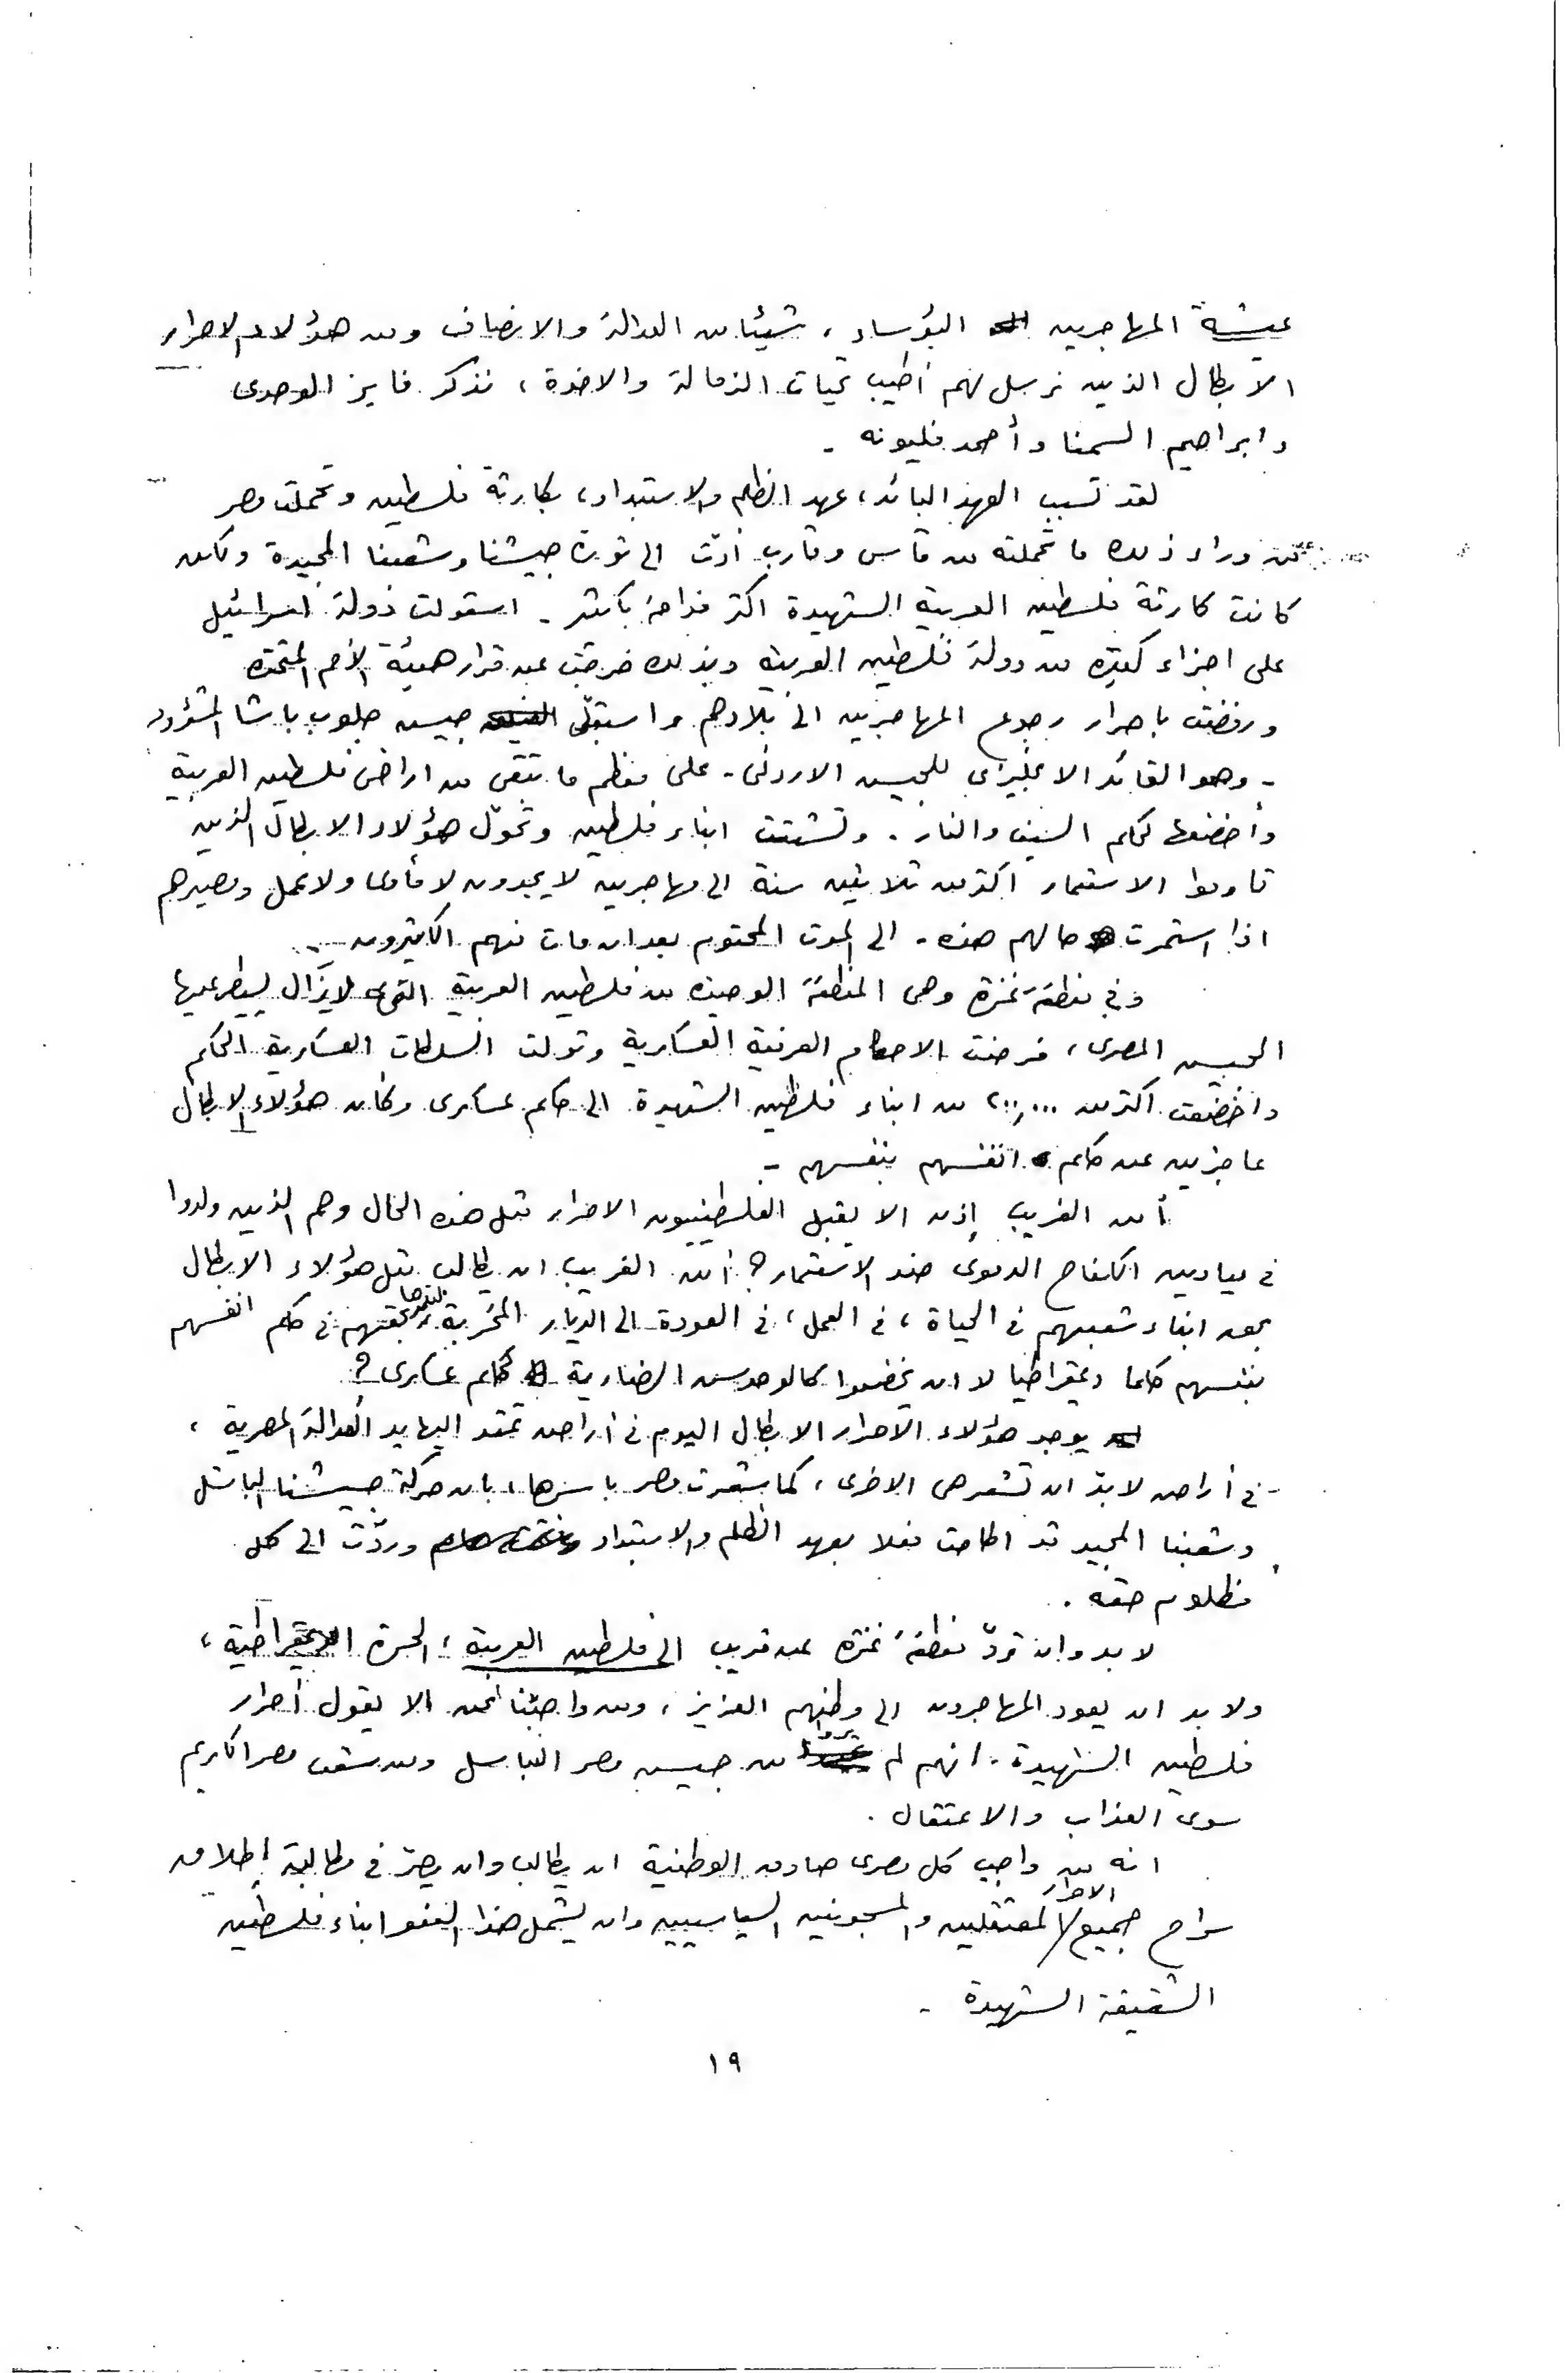 عيشة المهاجرين البؤساء، شيئا من العدالة والانصاف ومن هؤلاء الاحرار
الابطال الذين نرسل لهم أطيب تحيات الزمالة والاخوة، نذكر فايز الوحدى
وابراهيم السمنا وأحمد فليونه -
لقد تسبب العهد البائد، عهد الظلم والاستبداد، بكارثة فلسطين وتحملت مصر
من وراء ذلك ما تحملته من مآس وتارب أدّت الى ثورة جيشنا وشعبنا المجيدة ولكن
كانت كارثة فلسطين العربية الشهيدة اكثر فداحة بكثير - استولت دولة اسرائيل
على اجزاء كبيرة من دولة فلسطين العربية وبذلك خرجت عن قرار هيئة الأمم المتحده
ورفضت باصرار رجوع المهاجرين الى بلادهم واستولى جيش جلوب باشا المشؤوم
- وهو القائد الانجليزى للجيش الاردنى - على معظم ما تبقى من اراضى فلسطين العربية
وأخضعها لحكم السيف والنار. وتشتت ابناء فلسطين وتحوّل هؤلاء الابطال الذين
قاوموا الاستعمار اكثر من ثلاثين سنة الى مهاجرين لا يجدون لا مأوى ولا عمل ومصيرهم
اذا استمرت حالهم هذه - الى الموت المحتوم بعد ان مات منهم الكثيرون -
وفى منطقة غزة وهى المنطقة الوحيدة من فلسطين العربية التى لا يزال يسيطر عليها
الجيش المصرى، فرضت الاحكام العرفية العسكرية وتولت السلطات العسكرية الحكم
واخضعت اكثر من ٢٠٠,٠٠٠ من ابناء فلسطين الشهيدة الى حاكم عسكرى وكأن هؤلاء الابطال
عاجزين عن حكم انفسهم بنفسهم -
أمن الغريب إذن الا يقبل الفلسطينيون الاحرار مثل هذه الحال وهم الذين ولدوا
فى ميادين الكفاح الدموى ضد الاستعمار؟ أمن الغريب ان يطالب مثل هؤلاء الابطال
بحق ابناء شعبهم فى الحياة، فى العمل، فى العودة الى الديار المخربة بحقهم فى حكم انفسهم
بنفسهم حكما ديمقراطيا لا ان يخضعوا كالوحوش الضارية لحاكم عسكرى؟
يوجد هؤلاء الاحرار الابطال اليوم فى أراض تمتد اليها يد العدالة المصرية،
فى أراض لابدّ ان تشعر هى الاخرى، كما شعرت مصر باسرها، بان حركة جيشنا الباسل
وشعبنا المجيد قد اطاحت فعلا بعهد الظلم والاستبداد وردّت الى كل
مظلوم حقه.
لا بد وان تردّ منطقة غزة عن قريب الى فلسطين العربية، الحرة الديمقراطية،
ولا بد ان يعود المهاجرون الى وطنهم العزيز، ومن واجبنا نحن الا يقول أحرار
فلسطين الشهيدة - انهم لم يروا من جيش مصر الباسل ومن شعب مصر الكريم
سوى العذاب والاعتقال.
انه من واجب كل مصرى صادق الوطنية ان يطالب وان يصرّ فى مطالبة إطلاق
سراح جميع الاحرار المعتقلين والمسجونين السياسيين وان يشمل هذا العفو ابناء فلسطين
الشقيقة الشهيدة -
١٩